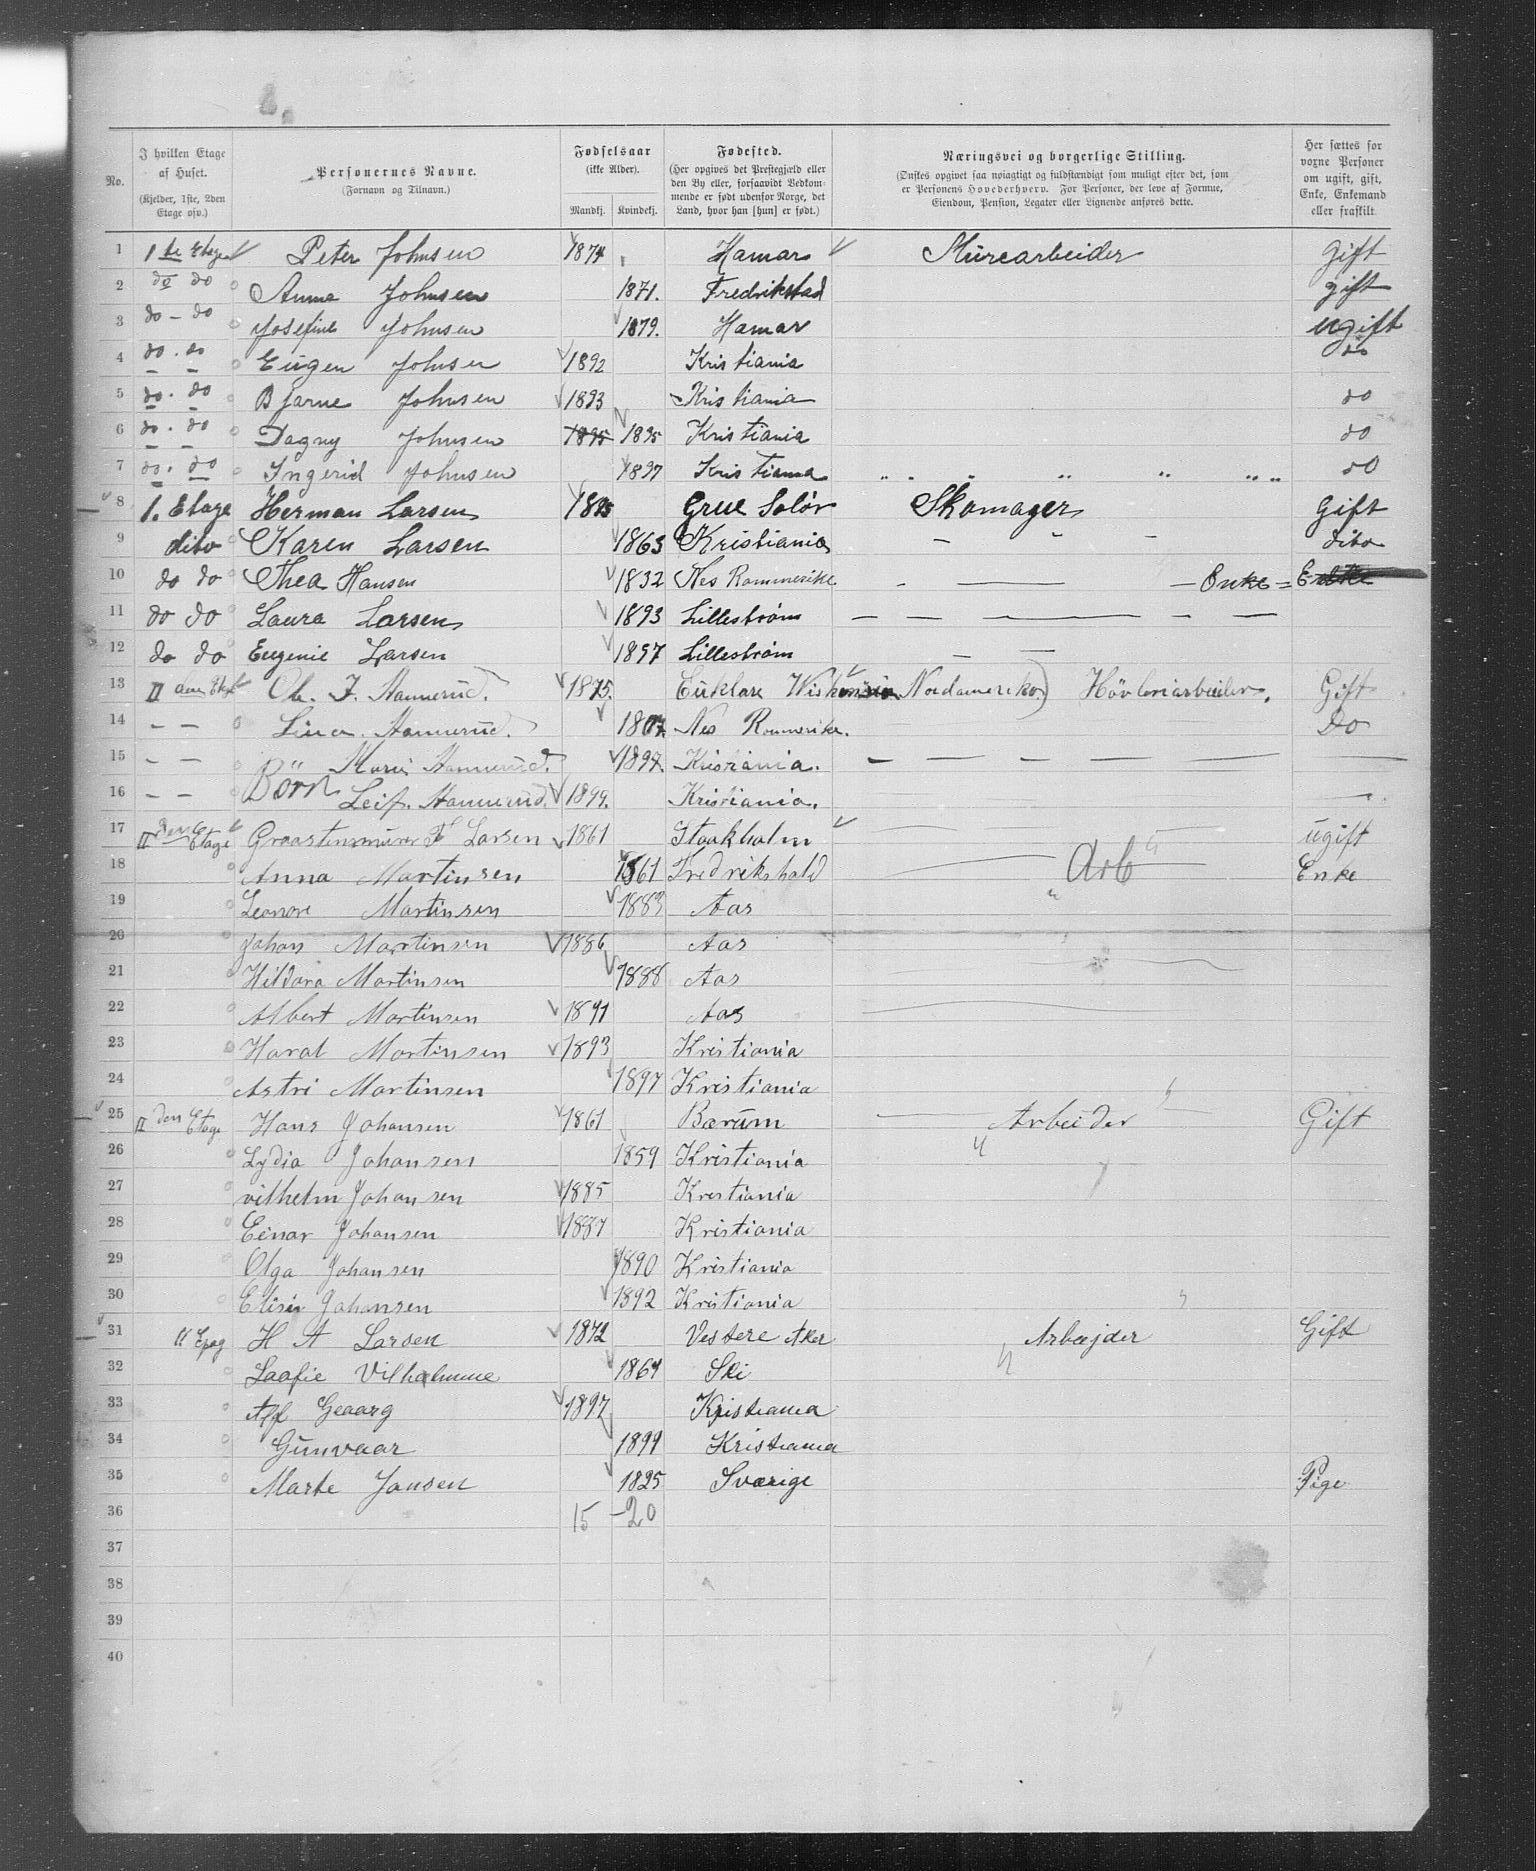 No.
I hvilken Etage af Huset.
(Kjelder, 1ste, 2den Etage osv.)
Personernes Navne.
(Fornavn og Tilnavn.)
Fødselsaar
(ikke Alder).
Mandkj. Kvindekj.
Fødested.
(Her opgives det Præstegjæld eller den By eller, forsaavidt Vedkommende er født udenfor Norge, det Land, hvor han [hun] er født.)
Næringsvei og borgerlige Stilling.
(Ønskes opgivet saa nøiagtigt og fuldstændigt som muligt efter det, som er Personens Hovederhverv. For Personer, der leve af Formue, Eiendom, Pension, Legater eller Lignende anføres dette.
Her sættes for voxne Personer om ugift, gift, Enke, Enkemand eller fraskilt.
1 1ste Etage Peter Johnsen 1874 Hamar Murearbeider gift
2 do do Anna Johnsen 1871. Fredrikstad gift
3 do - do Josefine Johnsen 1879. Hamar ugift
4 do. do Eugen Johnsen 1892 Kristiania do
5 do. do Bjarne Johnsen 1893 Kristiania do
6 do. do Dagny Johnsen 1895 1895 Kristiania do
7 do. do Ingerid Johnsen 1897 Kristiania do
8 1. Etage Herman Larsen Grue Solør Skomager Gift
9 dito Karen Larsen 1863 Kristiania dito
10 do do Thea Hansen 1832 Nes Rommerike - Enke = Enke
11 do do Laura Larsen 1893 Lillestrøm
12 do do Eugenie Larsen 1897 Lillestrøm
13 II Ole. J. Hannerud. 1875. Euklare Wiskonsin Nordamerika.) Høvleriarbeider. Gift
14 - - Lina. Hannerud. Nes Rommerike. Do
15 - - Marie Hannerud. 1897. Kristiania.
16 - - Børn Leif. Hannerud. 1899. Kristiania.
17 II den Etage Graastensmurer F Larsen 1861 Stokholm ugift
18 Anna Martinsen 1861 Fredrikshald Arb Enke
19 Leonore Martinsen 1883 Aas
20 Johan Martinsen 1886 Aas
21 Hildara Martinsen 1888 Aas
22 Albert Martinsen 1891 Aas
23 Haral Martinsen 1893 Kristiania
24 Astri Martinsen 1897 Kristiania
25 II den Etage Hans Johansen 1861 Bærum Arbeider Gift
26 Lydia Johansen 1859 Kristiania
27 vilhelm Johansen 1885 Kristiania
28 Einar Johansen 1887 Kristiania
29 Olga Johansen 1890 Kristiania
30 Elisie Johansen 1892 Kristiania
31 II H A Larsen 1872 Vestere Aker Arbejder Gift
32 Laafie Vilhelmine Ski
33 Alf Geaarg 1897 Kristiania
34 Gunvaar 1899 Kristiania
35 Marte Jansen 1825 Sværige Pige
36 15 - 20
37
38
39
40